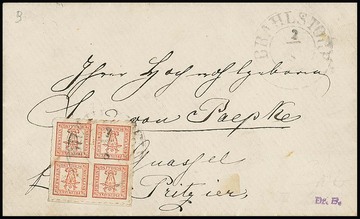 BRAHLSTORF
2
Ihro Hochwohlgeboren
von Paepke
Quassel
Pritzier
Dr. B.